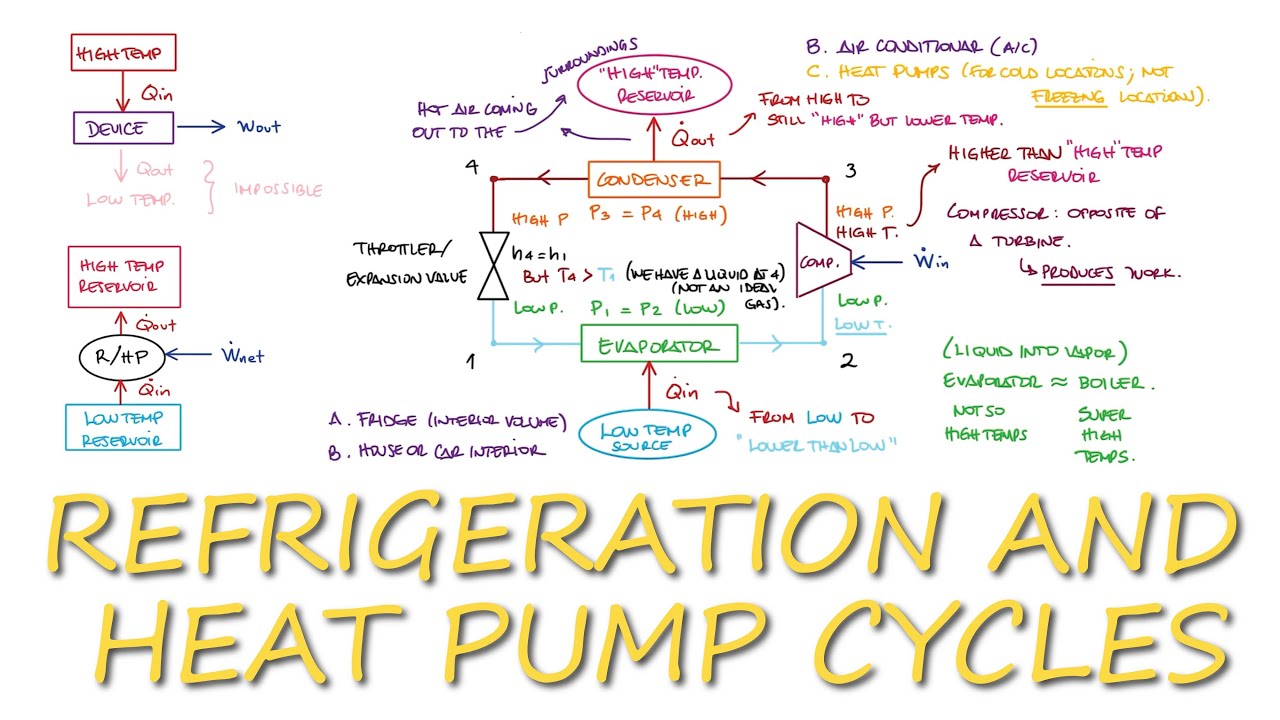 HIGH TEMP
Qin
DEVICE
Wout
Qout
LOW TEMP.
IMPOSSIBLE
HIGH TEMP
RESERVOIR
Q̇out
R/HP
Ẇnet
Q̇in
LOW TEMP
RESERVOIR
SURROUNDINGS
HOT AIR COMING
OUT TO THE
"HIGH" TEMP.
RESERVOIR
Q̇out
FROM HIGH TO
STILL "HIGH" BUT LOWER TEMP.
B. AIR CONDITIONAR (A/C)
C. HEAT PUMPS (FOR COLD LOCATIONS; NOT
FREEZNG LOCATIONS).
4
CONDENSER
3
HIGH P
P3 = P4 (HIGH)
HIGH P.
HIGH T.
HIGHER THAN "HIGH" TEMP
RESERVOIR
THROTTLER/
EXPANSION VALUE
h4=h1
BUT T4 > T1 (WE HAVE A LIQUID AT 4)
(NOT AN IDEAL
GAS).
COMP.
Ẇin
COMPRESSOR: OPPOSITE OF
A TURBINE.
PRODUCES WORK.
LOW P.
P1 = P2 (LOW)
LOW P.
LOW T.
1
EVAPORATOR
2
Q̇in
FROM LOW TO
"LOWER THAN LOW"
LOW TEMP
SOURCE
A. FRIDGE (INTERIOR VOLUME)
B. HOUSE OR CAR INTERIOR
(LIQUID INTO VAPOR)
EVAPORATOR ≈ BOILER.
NOT SO
HIGH TEMPS
SUPER
HIGH
TEMPS.
REFRIGERATION AND
HEAT PUMP CYCLES